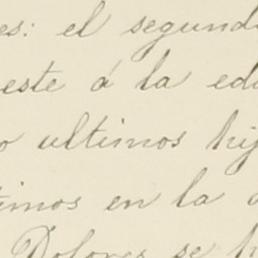 es: el segund
este á la ed
o ultimos hij
timos en la
Dolores se h